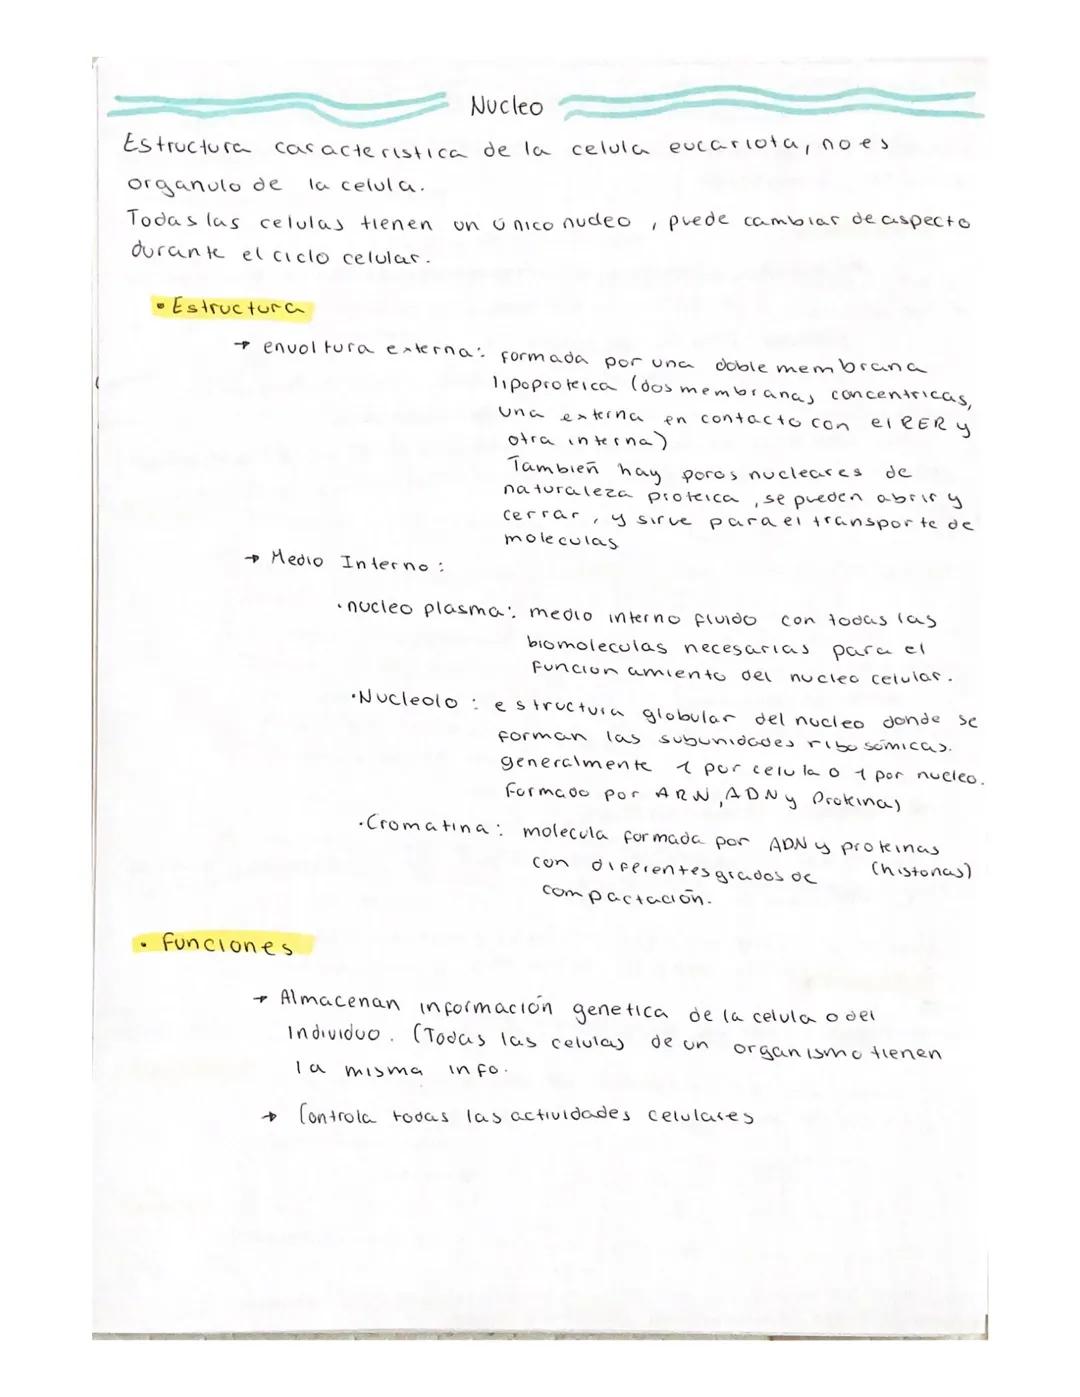 Nucleo
Estructura caracteristica de la celula eucariota, no es
organulo de la celula.
Todas las celulas tienen un único nucleo, puede cambiar de aspecto
durante el ciclo celular.
• Estructura
→ envoltura externa: formada por una doble membrana
lipoproteica (dos membranas concentricas,
una externa en contacto con el RER y
otra interna)
También hay poros nucleares de
naturaleza proteica, se pueden abrir y
cerrar, y sirve para el transporte de
moleculas
→ Medio Interno:
·nucleo plasma: medio interno fluido con todas las
biomoleculas necesarias para el
funcionamiento del nucleo celular.
·Nucleolo: estructura globular del nucleo donde se
forman las subunidades ribosómicas.
generalmente 1 por celula o 1 por nucleo.
Formado por ARN, ADN y Proteinas
·Cromatina: molecula formada por ADN y proteinas
con diferentes grados de (histonas)
compactación.
• Funciones
→ Almacenan información genetica de la celula o del
Individuo. (Todas las celulas de un organismo tienen
la misma info.
→ Controla todas las actividades celulares